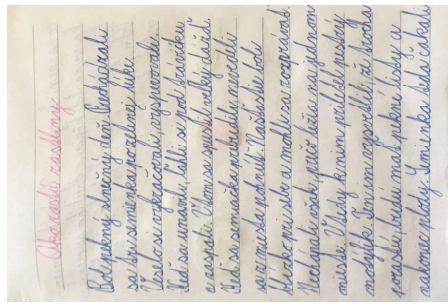 Ako rastú rastliny
Bol pekný slnečný deň. Prechádzali
sa tri semienka po zelenej lúke.
Všetko si obzerali, rozprávali
Keď sa unavili, ľahli si pod stromčeku
a zaspali. V tom sa spustil veľký dážď.
Keď sa semiačka prebudili, nevedeli
sa z miesta pohnúť. Našťastie boli
blízko pri sebe a mohli sa rozprávať.
Nechápali však prečo ležia na jednom
mieste. Vtedy k nim priletel pestrý
motýlik. Ten im vysvetlil, že budú
prasť, budú mať pekné listy a
nakoniec plody. Semienka teda čakali